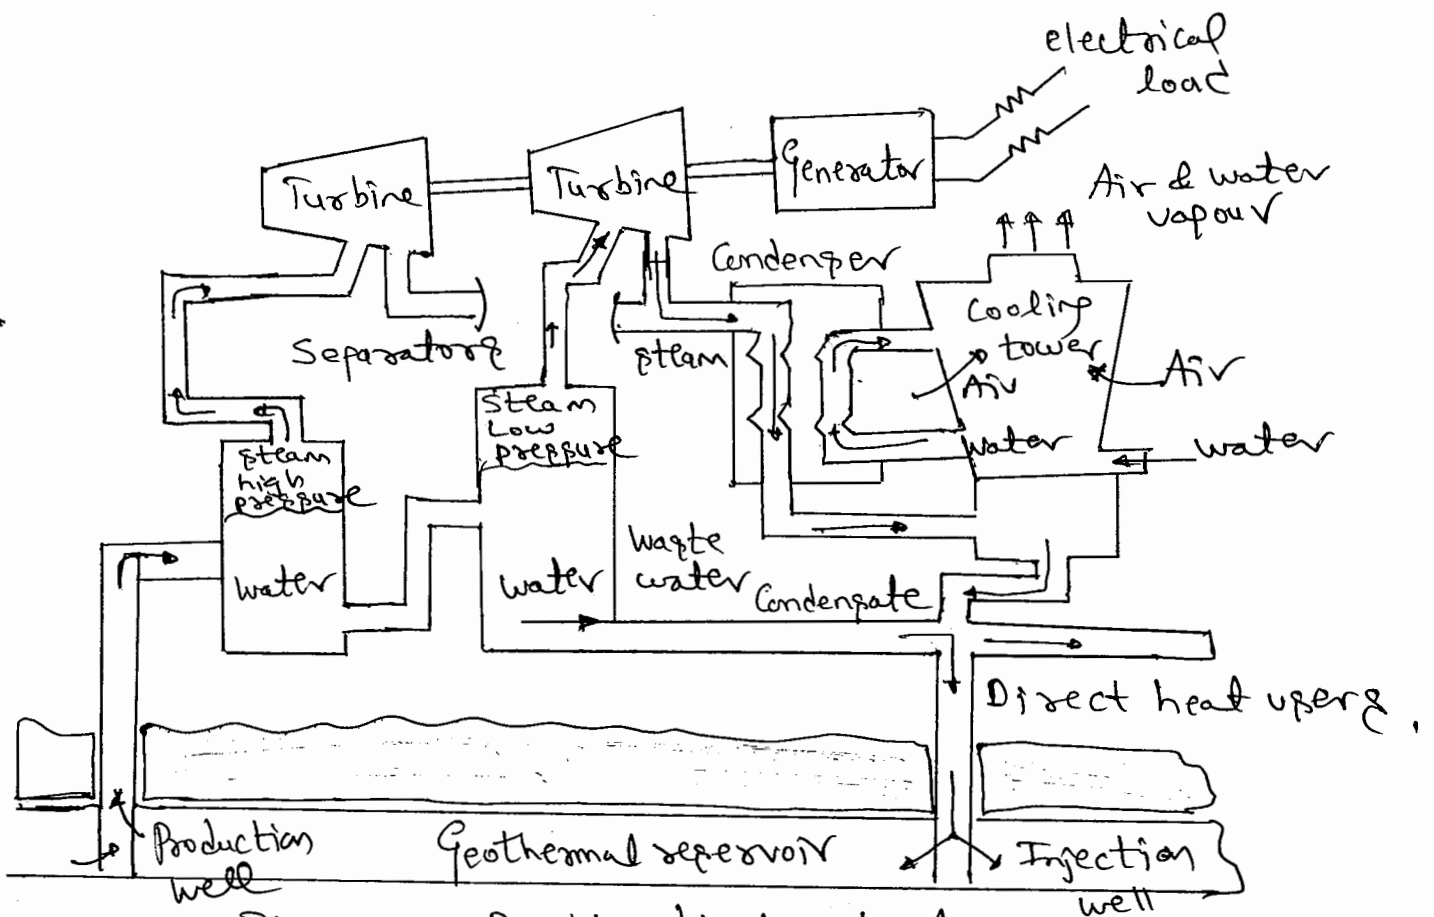 electrical
load
Turbine
Turbine
Generator
Air & water
vapour
Condenser
cooling
tower
Separators
steam
Air
Air
steam
low
pressure
steam
high
pressure
water
water
water
water
waste
water
Condensate
Direct heat users.
Production
well
Geothermal reservoir
Injection
well